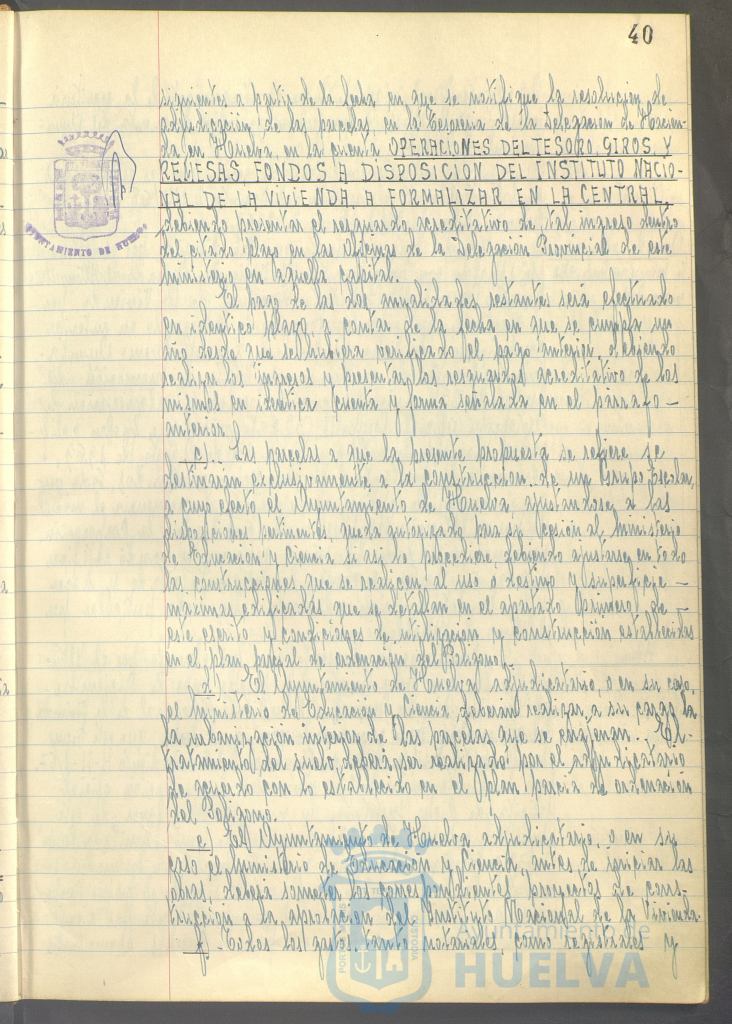 40
siguientes a partir de la fecha en que se notifique la resolución de
adjudicación de las parcelas, en la Tesoreria de la Delegacion de Hacien-
da en Huelva, en la cuenta OPERACIONES DEL TESORO, GIROS, Y
REMESAS, FONDOS A DISPOSICION DEL INSTITUTO NACIO-
NAL DE LA VIVIENDA, A FORMALIZAR EN LA CENTRAL,
debiendo presentar el resguardo acreditativo de tal ingreso dentro
del citado plazo en las Oficinas de la Delegación Provincial de este
Ministerio en aquella capital.
El pago de las dos anualidades restantes será efectuado
en identico plazo a contar de la fecha en que se cumpla un
año desde que se hubiera verificado el pago anterior debiendo
realizar los ingresos y presentar los resguardos acreditativo de los
mismos en identica cuenta y forma señalada en el parrafo —
anterior.
c).- Las parcelas a que la presente propuesta se refiere se
destinarán exclusivamente a la construccion de un Grupo Escolar,
a cuyo efecto el Ayuntamiento de Huelva, ajustandose a las
disposiciones pertinentes, queda autorizado para su cesión al Ministerio
de Educación y Ciencia si asi lo procediere, debiendo ajustarse en todo
las construcciones que se realicen al uso o destino y superficie —
maximas edificadas que se detallan en el apartado primero de —
este escrito y condiciones de utilizacion y construcción establecidas
en el plan parcial de ordenación del Poligono.
d).- El Ayuntamiento de Huelva adjudicatario, o en su caso,
el Ministerio de Educación y Ciencia, deberan realizar, a su cargo la
la urbanización interior de las parcelas que se enajenan. El-
tratamiento del suelo deberá ser realizado por el adjudicatario
de acuerdo con lo establecido en el plan parcial de ordenación
del Poligono.
e) El Ayuntamiento de Huelva adjudicatario, o en su
caso el Ministerio de Educacion y Ciencia, antes de iniciar las
obras, deberá someter los correspondientes proyectos de cons-
trucción a la aprobacion del Instituto Nacional de la Vivienda.
f.- Todos los gastos, tanto notariales, como registrales y
AYUNTAMIENTO DE HUELVA
Ayuntamiento de
HUELVA